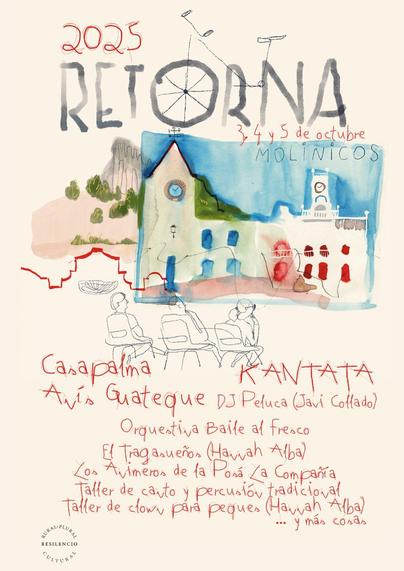 2025
RETORNA
3, 4 y 5 de octubre
MOLINICOS
Casapalma KANTATA
Avís Guateque DJ Peluca (Javi Collado)
Orquestina Baile al Fresco
El Tragasueños (Hannah Alba)
Los Animeros de la Posá La Compañía
Taller de canto y percusión tradicional
Taller de clown para peques (Hannah Alba)
... y más cosas
RURAL·PLURAL
RESILENCIO
CULTURAL